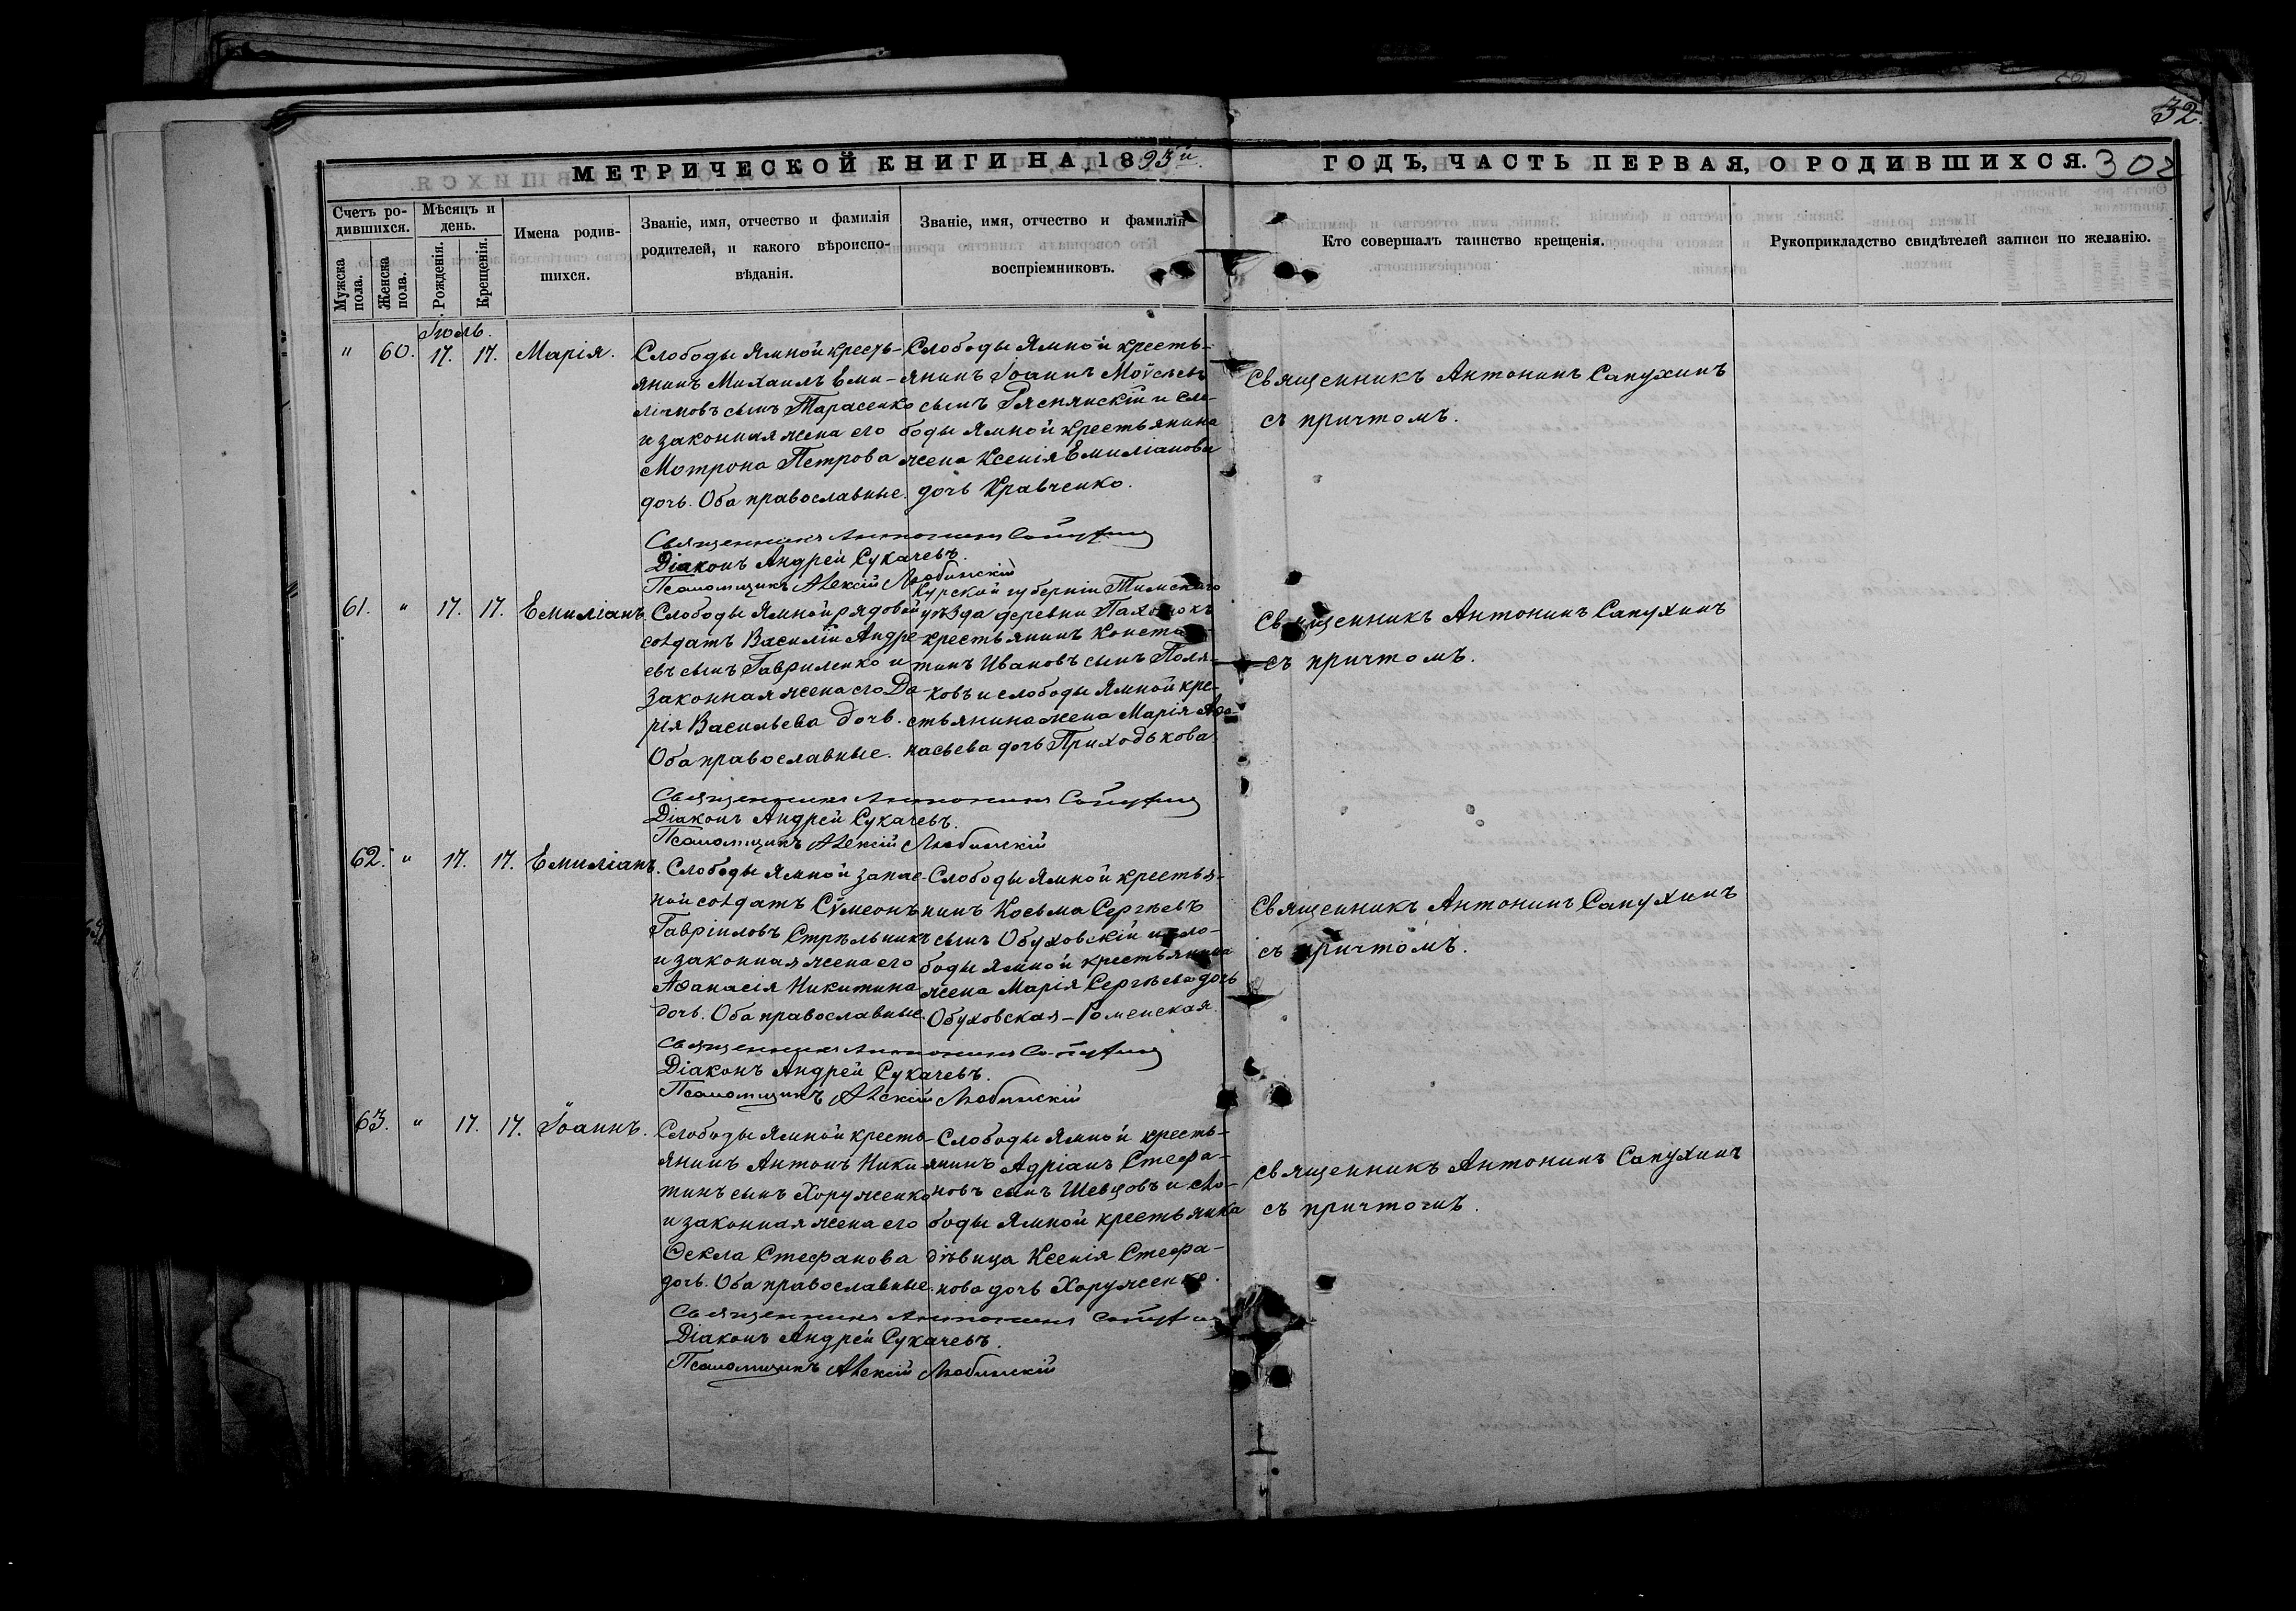 32.
МЕТРИЧЕСКОЙ КНИГИ НА 1893й
ГОДЪ, ЧАСТЬ ПЕРВАЯ, О РОДИВШИХСЯ.
302
Счетъ ро-
дившихся.
Мужска
пола.
Женска
пола.
Мѣсяцъ и
день.
Рожденія.
Крещенія.
Имена родив-
шихся.
Званіе, имя, отчество и фамилія
родителей, и какого вѣроиспо-
вѣданія.
Званіе, имя, отчество и фамилія
воспріемниковъ.
Кто совершалъ таинство крещенія.
Рукоприкладство свидѣтелей записи по желанію.
Іюль.
" 60. 17. 17. Марія.
Слободы Ямной кресть-
янинъ Михаилъ Еми-
ліановъ сынъ Тарасенко
и законная жена его
Мотрона Петрова
дочь. Оба православные.
Слободы Ямной кресть-
янинъ Іоаннъ Моѵсеевъ
сынъ Ряснянскій и сло-
боды Ямной крестьянина
жена Ксенія Емиліанова
дочь Кравченко.
Священникъ Антонинъ Сапухинъ
съ причтомъ.
Священникъ Антонинъ Сапухинъ
Діаконъ Андрей Сукачевъ.
Псаломщикъ Алексій Любинскій
61. " 17. 17. Емиліанъ.
Слободы Ямной рядовой
солдатъ Василій Андре
евъ сынъ Гавриленко и
законная жена его Да-
рія Васильева дочь.
Оба православные.
Курской губерніи Тимскаго
уѣзда деревни
крестьянинъ Конста
тинъ Ивановъ сынъ Поля-
ковъ и слободы Ямной кре-
стьянина жена Марія Аѳа-
насьева дочь Приходькова.
Священникъ Антонинъ Сапухинъ
съ причтомъ.
Священникъ Антонинъ Сапухинъ
Діаконъ Андрей Сукачевъ.
Псаломщикъ Алексій Любинскій
62. " 17. 17. Емиліанъ.
Слободы Ямной запас-
ной солдатъ Сѵмеонъ
Гавріиловъ Стрѣльникъ
и законная жена его
Аѳанасія Никитина
дочь. Оба православные.
Слободы Ямной крестья-
нинъ Косьма Сергѣевъ
сынъ Обуховскій и сло-
боды Ямной крестьянина
жена Марія Сергѣева дочь
Обуховская-Роменская.
Священникъ Антонинъ Сапухинъ
съ причтомъ.
Священникъ Антонинъ Сапухинъ
Діаконъ Андрей Сукачевъ.
Псаломщикъ Алексій Любинскій
63. " 17. 17. Іоаннъ.
Слободы Ямной кресть-
янинъ Антонъ Ники-
тинъ сынъ Хоруженко
и законная жена его
Ѳекла Стефанова
дочь. Оба православные.
Слободы Ямной кресть-
янинъ Адріанъ Стефа-
новъ сынъ Шевцовъ и сло-
боды Ямной крестьянка
дѣвица Ксенія Стефа-
нова дочь Хоруженко.
Священникъ Антонинъ Сапухинъ
съ причтомъ.
Священникъ Антонинъ Сапухинъ
Діаконъ Андрей Сукачевъ.
Псаломщикъ Алексій Любинскій